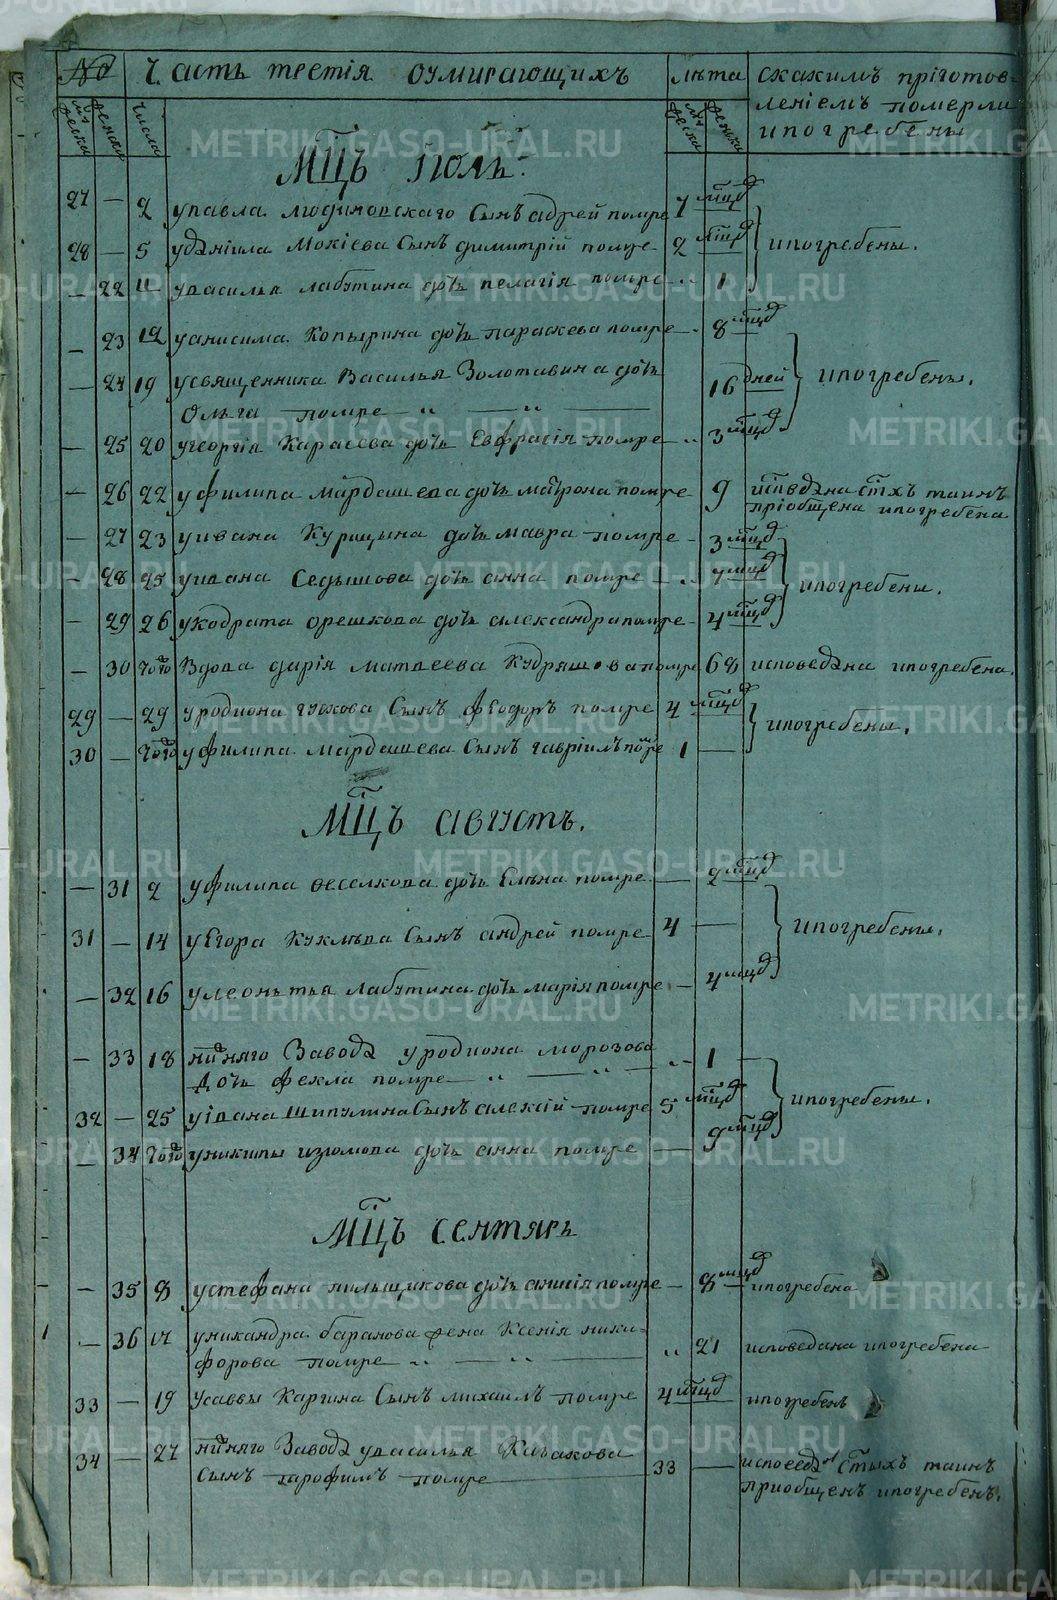 № Часть третія оумирающихъ лѣта скакимъ пріготов=
мужеска женска числа мужеска женска леніемъ померли
ипогребены
Мцъ Іюль.
27 — 2 упавла людиновскаго Сынъ адрей помре 7 мцд
28 — 5 уданіила Мокіева Сынъ димитрій помре 2 мцд ипогребены.
— 22 11 увасилья лабутина дочь пелагія помре „ 1
— 23 12 уанисима Копырина дочь параскева помре „ 8 мцд
— 24 19 усвященника Василья Золотавина дочь 16 дней ипогребены.
Ольга помре — „ — „ —
— 25 20 угеоргія Караева дочь Евфрасія помре „ 3 мцд
— 26 22 уфилипа мардашева дочь матрона помре 9 исповдана стхъ таинъ
пріобщена ипогребена
— 27 23 уивана Курицына дочь мавра помре — 3 мцд
— 28 25 уивана Седышова дочь анна помре „ 7 мцд ипогребены.
— 29 26 укодрата орешкова дочь александра помре — 4 мцд
— 30 тогож Вдова дарія матвеева Кудряшова помре 68 исповедана ипогребена.
29 — 29 уродиона гускова Сынъ феодоръ помре 4 мцд ипогребены.
30 — тогож уфилипа мардашева Сынъ гавріилъ помре 1 —
Мцъ августъ.
— 31 2 уфилипа веселкова дочь Елѣна помре — 2 мцд
31 — 14 уЕгора Куклѣва Сынъ андрей помре 4 — ипогребены.
— 32 16 улеонътья лабутина дочь марія помре — 4 мцд
— 33 18 нижняго Завода уродиона морозова „ 1 —
дочь фекла помре — „ — „ —
32 — 25 уівана Шипулина Сынъ алексій помре 5 мцд ипогребены.
— 34 тогож уникиты изюмова дочь анна помре — 9 мцд
Мцъ сентяръ
— 35 8 устефана пильщикова дочь анисія помре — 8 мцд ипогребена
— 36 17 уникандра баранова жена Ксенія ники-
форова помре „ — „ — „ 21 исповедана ипогребена
33 — 19 усаввы Каргина Сынъ михаилъ помре 4 мцд ипогребенъ
34 — 27 нижняго Завода увасилья Казакова
Сынъ парофилъ помре — 33 — исповедан Стыхъ таинъ
приобщенъ ипогребенъ.
METRIKI.GASO-URAL.RU